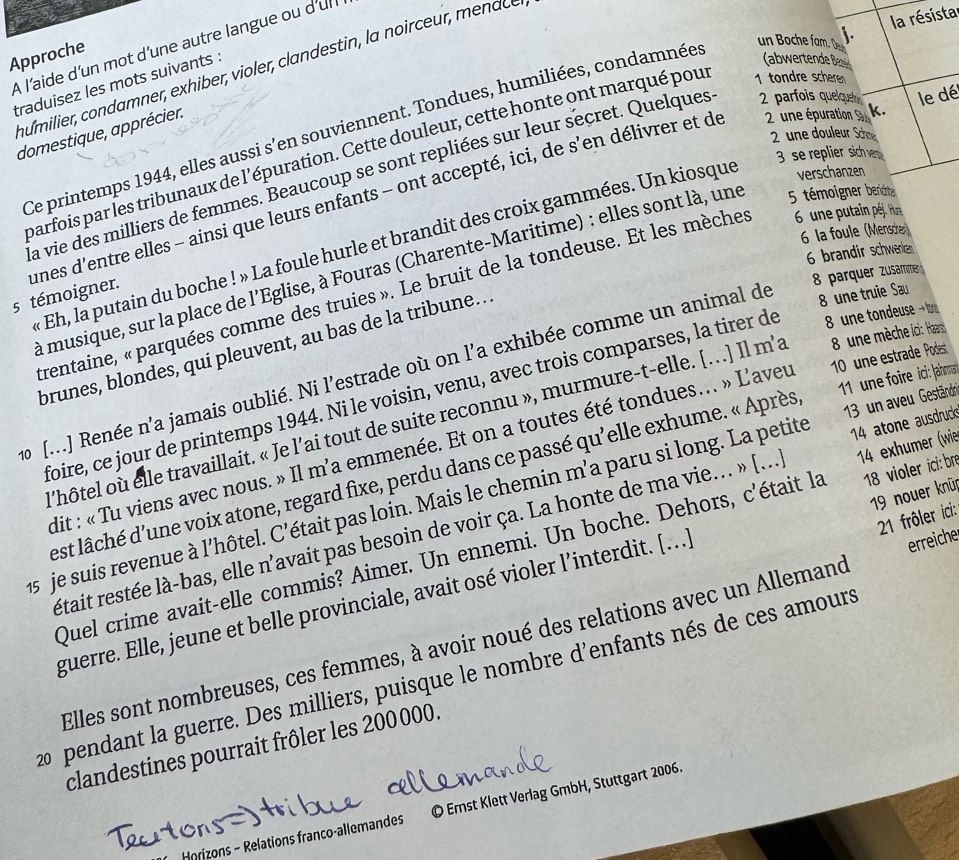 Approche
A l'aide d'un mot d'une autre langue ou d'un
traduisez les mots suivants :
humilier, condamner, exhiber, violer, clandestin, la noirceur, menacer,
domestique, apprécier.
Ce printemps 1944, elles aussi s'en souviennent. Tondues, humiliées, condamnées
parfois par les tribunaux de l'épuration. Cette douleur, cette honte ont marqué pour
la vie des milliers de femmes. Beaucoup se sont repliées sur leur secret. Quelques-
unes d'entre elles – ainsi que leurs enfants – ont accepté, ici, de s'en délivrer et de
5 témoigner.
« Eh, la putain du boche ! » La foule hurle et brandit des croix gammées. Un kiosque
à musique, sur la place de l'Eglise, à Fouras (Charente-Maritime) : elles sont là, une
trentaine, « parquées comme des truies ». Le bruit de la tondeuse. Et les mèches
brunes, blondes, qui pleuvent, au bas de la tribune…
10 […] Renée n'a jamais oublié. Ni l'estrade où on l'a exhibée comme un animal de
foire, ce jour de printemps 1944. Ni le voisin, venu, avec trois comparses, la tirer de
l'hôtel où elle travaillait. « Je l'ai tout de suite reconnu », murmure-t-elle. […] Il m'a
dit : « Tu viens avec nous. » Il m'a emmenée. Et on a toutes été tondues… » L'aveu
est lâché d'une voix atone, regard fixe, perdu dans ce passé qu'elle exhume. « Après,
15 je suis revenue à l'hôtel. C'était pas loin. Mais le chemin m'a paru si long. La petite
était restée là-bas, elle n'avait pas besoin de voir ça. La honte de ma vie… » […]
Quel crime avait-elle commis? Aimer. Un ennemi. Un boche. Dehors, c'était la
guerre. Elle, jeune et belle provinciale, avait osé violer l'interdit. […]
Elles sont nombreuses, ces femmes, à avoir noué des relations avec un Allemand
20 pendant la guerre. Des milliers, puisque le nombre d'enfants nés de ces amours
clandestines pourrait frôler les 200 000.
Teutons => tribue allemande
Horizons – Relations franco-allemandes
© Ernst Klett Verlag GmbH, Stuttgart 2006.
un Boche fam.
(abwertende
1 tondre scheren
2 parfois
2 une épuration
2 une douleur
3 se replier sich
verschanzen
5 témoigner
6 une putain péj.
6 la foule
6 brandir
8 parquer
8 une truie Sau
8 une tondeuse →
8 une mèche ici:
10 une estrade Podest
11 une foire ici:
13 un aveu
14 atone
14 exhumer
18 violer ici:
19 nouer
21 frôler ici:
j.
la
k.
le